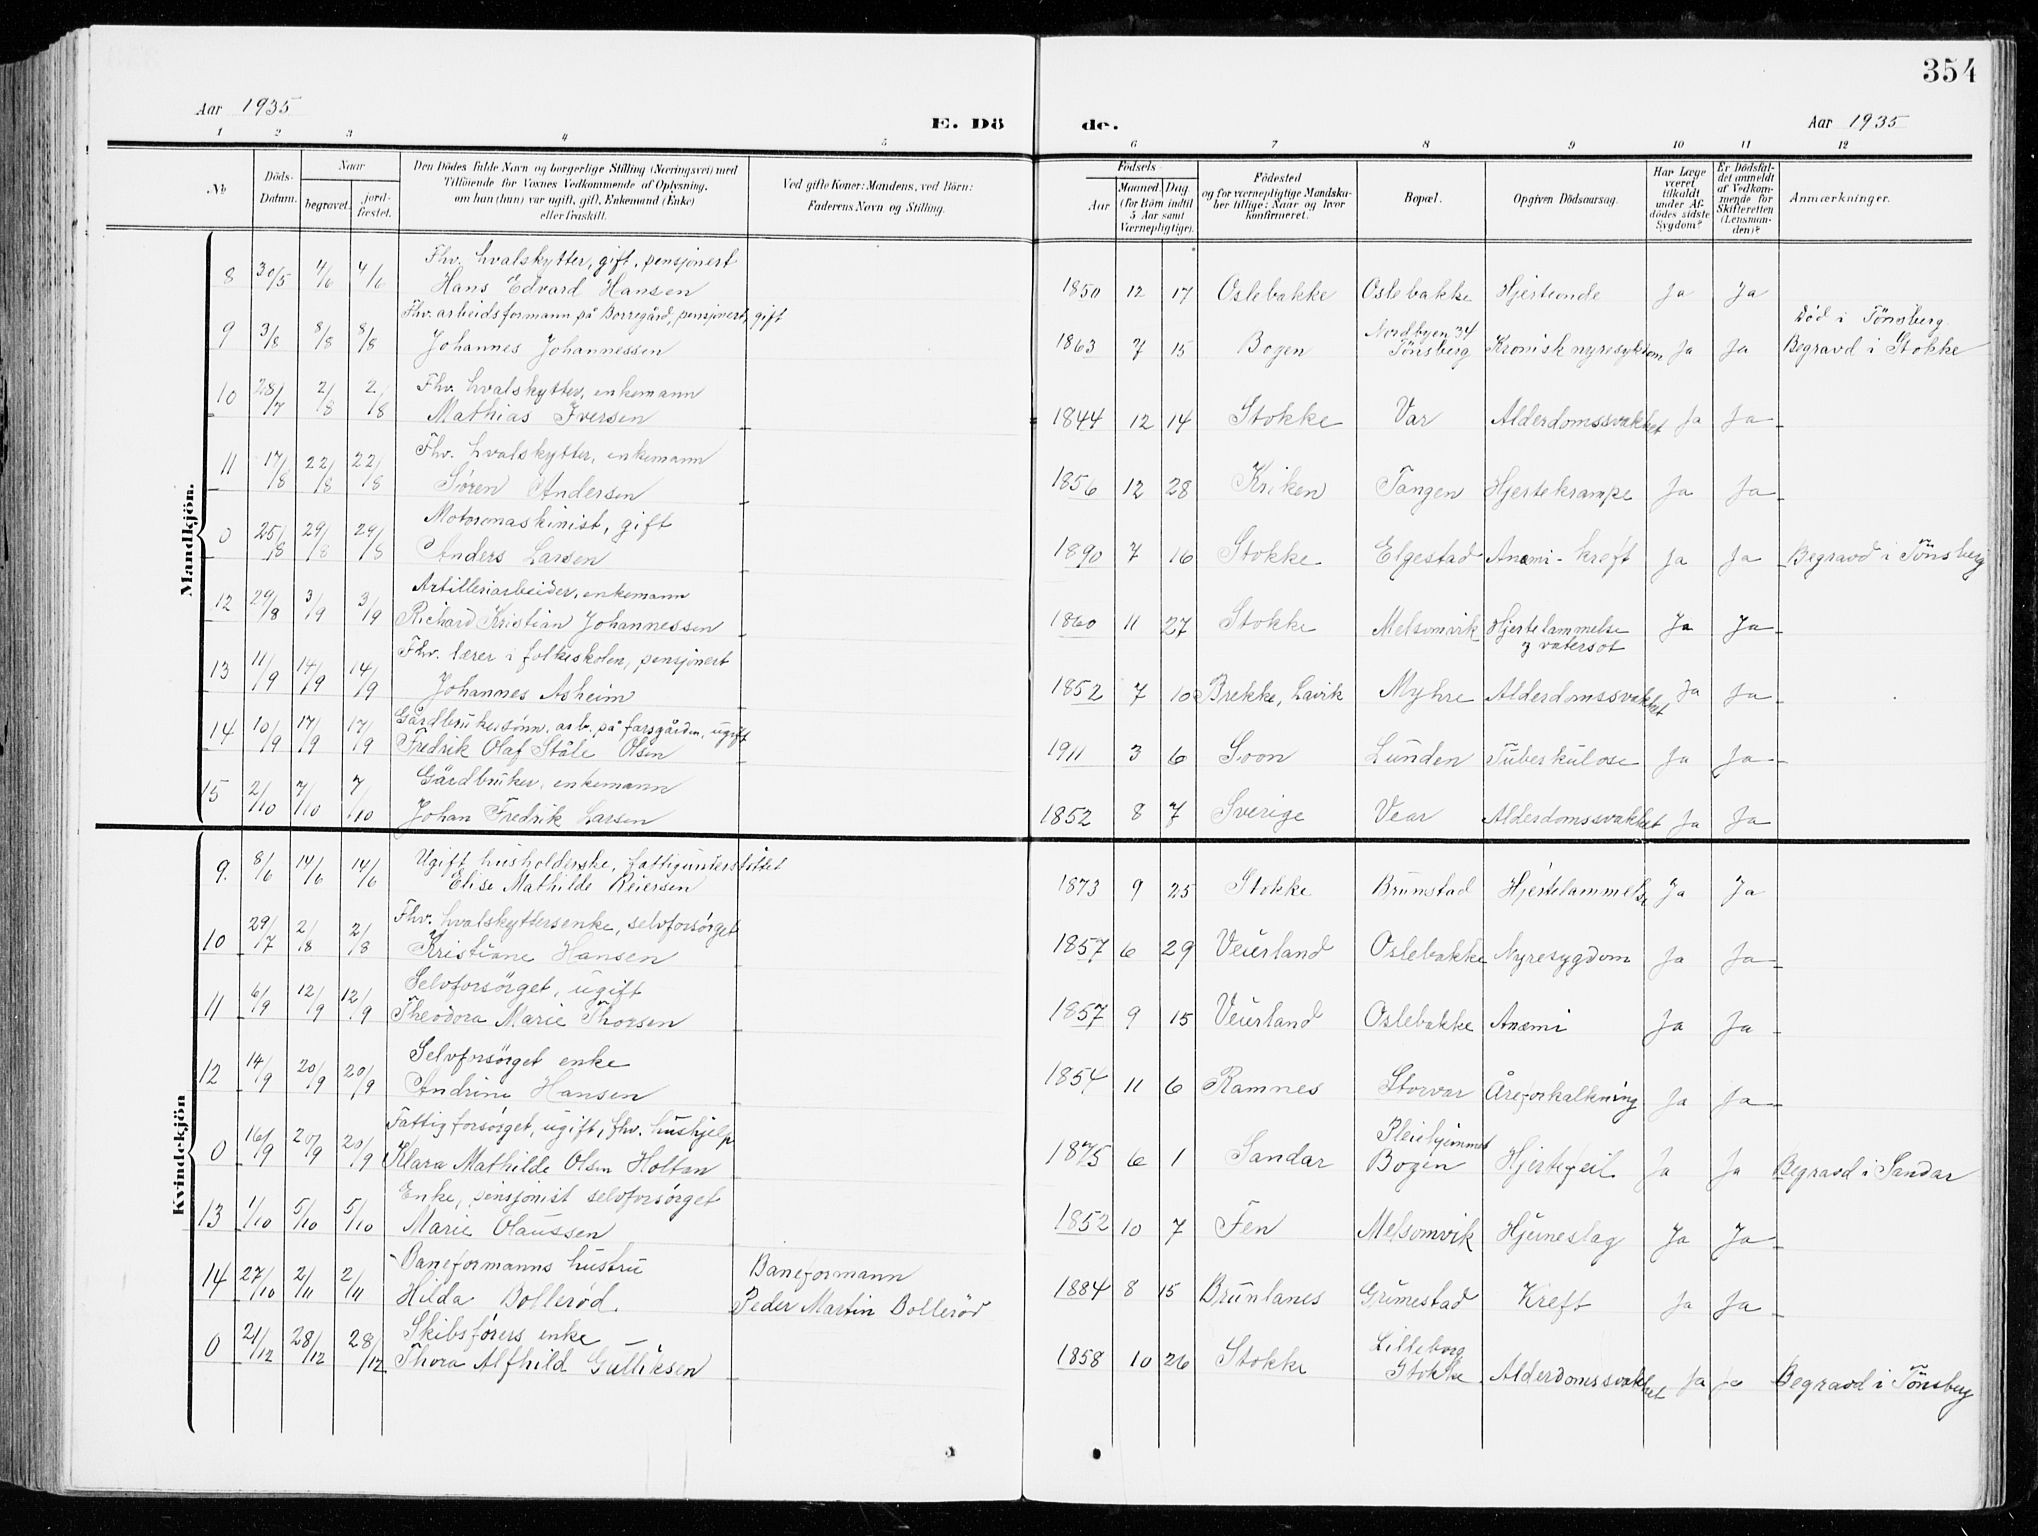 354
Aar 1935
E. Dö de.
Aar 1935
1 2 3 4 5 6 7 8 9 10 11 12
No
Döds-Datum.
Naar
begravet.
jordfæstet.
Den Dödes fulde Navn og borgerlige Stilling (Næringsvei) med
Tilföiende for Voxnes Vedkommende af Oplysning,
om hun (hun) var ugift, gift, Enkemand (Enke)
eller fraskilt.
Ved gifte Koner: Mandens, ved Börn:
Faderens Navn og Stilling.
Födsels
Aar
Maaned. Dag.
(for Börn indtil
5 Aar samt
Værnepligtige).
Födested
og for værnepligtige Mandska-
ber tillige: Naar og hvor
Konfirmeret.
Bopæl.
Opgiven Dödsaarsag.
Har Læge
været
tilkaldt
under Af-
dödes sidste
Sygdom?
Er Dödsfal-
det anmeldt
af Vedkom-
mende for
Skifteretten
(Lensman-
den)?
Anmærkninger.
Mandkjön.
Fhv. hvalskytter, gift, pensjonert
8 30/5 4/6 4/6 Hans Edvard Hansen 1850 12 17 Oslebakke Oslebakke Hjerteonde Ja Ja
Fhv. arbeidsformann på Borregård, pensjonert, gift
Nordbyen 34 Död i Tönsberg.
9 3/8 8/8 8/8 Johannes Johannessen 1863 7 15 Bogen Tönsberg Kronisk nyresykdom Ja Ja Begravd i Stokke
Fhv. hvalskytter, enkemann
10 28/7 2/8 2/8 Mathias Iversen 1844 12 14 Stokke Var Alderdomssvakhet Ja Ja
Fhv. hvalskytter, enkemann
11 17/8 22/8 22/8 Sören Andersen 1856 12 28 Kriken Tangen Hjertekrampe Ja Ja
Motormaskinist, gift
0 25/8 29/8 29/8 Anders Larsen 1890 7 16 Stokke Elgestad Anæmi - kreft Ja Ja Begravd i Tönsberg
Artilleriarbeider, enkemann
12 29/8 3/9 3/9 Richard Kristian Johannessen 1860 11 27 Stokke Melsomvik Hjertelammelse Ja Ja
og vatersot
Fhv. lærer i folkeskolen, pensjonert
13 11/9 14/9 14/9 Johannes Asheim 1852 7 10 Brekke, Lavik Myhre Alderdomssvakhet Ja Ja
Gårdbrukersönn, arb. på farsgården, ugift
14 10/9 17/9 17/9 Fredrik Olaf Ståle Olsen 1911 3 6 Soon Lunden Tuberkulose Ja Ja
Gårdbruker, enkemann
15 2/10 7/10 7/10 Johan Fredrik Larsen 1852 8 7 Sverige Vear Alderdomssvakhet Ja Ja
Kvindekjön
Ugift husholderske, fattigunderstöttet
9. 8/6 14/6 14/6 Elise Mathilde Reiersen 1873 9 25 Stokke Brunstad Hjertelammelse Ja Ja
Fhv. hvalskyttersenke, selvforsörget
10 29/7 2/8 2/8 Kristiane Hansen 1857 6 29 Veierland Oslebakke Nyresygdom Ja Ja
Selvforsörget, ugift
11 6/9 12/9 12/9 Theodora Marie Thorsen 1857 9 15 Veierland Oslebakke Anæmi Ja Ja
Selvforsörget enke
12 14/9 20/9 20/9 Andrine Hansen 1854 11 6 Ramnes Storvar Åreforkalkning Ja Ja
Fattigforsörget, ugift, fhv. hushjelp
Pleiehjemmet
0 16/9 20/9 20/9 Klara Mathilde Olsen Holtan 1875 6 1 Sandar Bogen Hjertefeil Ja Ja Begravd i Sandar
Enke, pensjonist selvforsörget
13 1/10 5/10 5/10 Marie Olaussen 1852 10 7 Fen Melsomvik Hjerneslag Ja Ja
Baneformanns hustru Baneformann
14 27/10 2/11 2/11 Hilda Bolleröd. Peder Martin Bolleröd 1884 8 15 Brunlanes Grimestad Kreft Ja Ja
Skibsförers enke Lilleborg
0 21/12 28/12 28/12 Thora Alfhild Gulliksen 1858 10 26 Stokke Stokke Alderdomssvakhet Ja Ja Begravd i Tönsberg